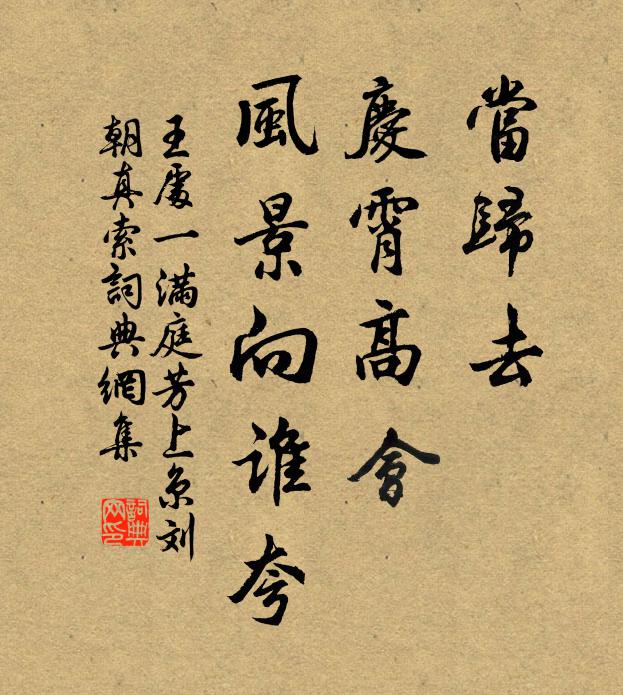 當歸去
慶霄高會
風景向誰夸
王處一滿庭芳上京刘
朝真索詞典網集
詞典网印